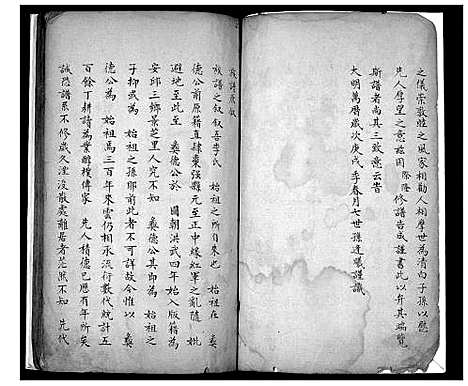 之儀崇敬睦之風家相勸人相摩世為清門子孫以慰
先人厚望之意茲因際隆修譜告成謹書此以弁其端覽
斯譜者尚其三致意云旹
大明萬曆歲次庚戌季春月七世孫逢曦謹識
族譜原叙
族譜之叙叙吾李氏 始祖之所自來也 始祖在 奠
德公前原籍直隸棗强縣元至正中緣紅軍之亂隨 妣
避地至此至 奠德公於 國朝洪武四年始入版籍為
安邱三鄉景芝里人究不知 奠德公其即為 始祖之
子抑或為 始祖之孫耶前此者不可討故今惟以 奠
德公為 始祖焉三百年來雲仍相承流衍數代統計五
百餘丁耕讀為業醇樸傳家 先人積德已應有年所矣
誠恐譜系不修歲久湮沒散處離居者茫然不知 先代